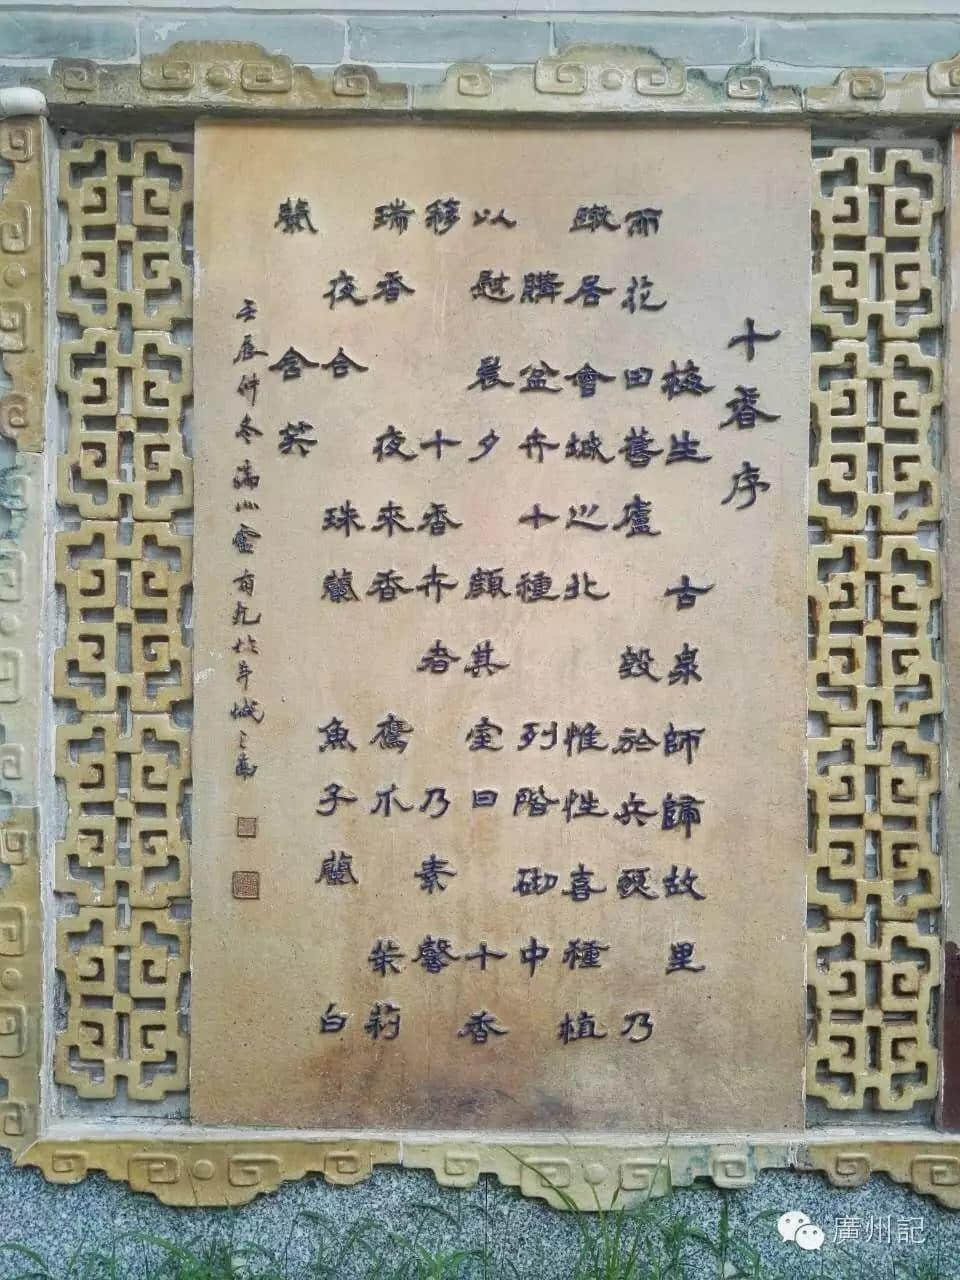 十香序
梅生古泉師歸故里
而花田舊廬毀於兵燹乃
居會城之北惟性喜種植
購盆卉十種列階砌中
以慰晨夕顏其室曰十香
移十香卉者乃素馨
瑞香夜來香鷹爪茉莉
夜合珠蘭魚子蘭白
蘭含笑
壬辰仲冬於羊城之南
廣州記